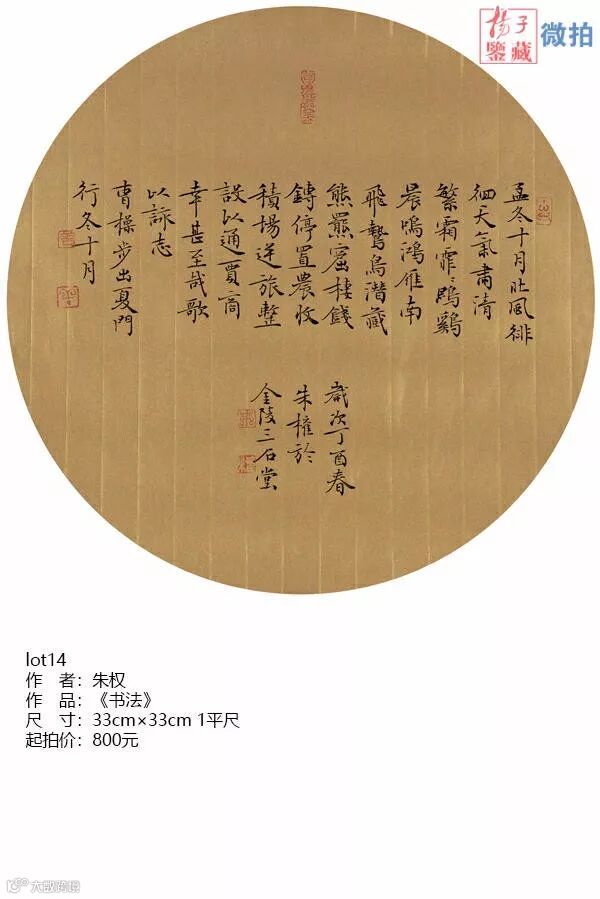 揚子
鑒藏
微拍
孟冬十月北風徘
徊天氣肅清
繁霜霏〻鵾鷄
晨鳴鴻雁南
飛鷙鳥潛藏
熊羆窟棲錢
鎛停置農收
積場逆旅整
設以通賈商
幸甚至哉歌
以詠志
曹操步出夏門
行冬十月
歲次丁酉春
朱權於
金陵三石堂
lot14
作 者：朱权
作 品：《书法》
尺 寸：33cm×33cm 1平尺
起拍价：800元
大数跨境